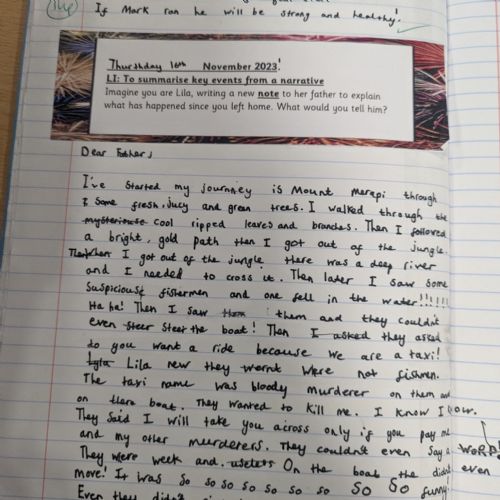 If Mark ran he will be strong and healthy!
Thursthday 16th November 2023!
LI: To summarise key events from a narrative
Imagine you are Lila, writing a new note to her father to explain
what has happened since you left home. What would you tell him?
Dear Father,
I've started my journney is Mount merapi through
some fresh, jucy and green trees. I walked through the
mysteriouse cool ripped leaves and bronches. Then I followed
a bright, gold path then I got out of the jungle.
When I got out of the jungle there was a deep river
and I needed to cross it. Then later I saw some
suspiciouse fishermen and one fell in the water!!!!!!
Ha ha! Then I saw them them and they couldn't
even steer steer the boat! Then I asked they asked
do you want a ride because we are a taxi!
Lyla Lila new they wernt were not fishmen.
The taxi name was bloody murderer on them and
on there boat. They wanted to kill me. I know I know.
They said I will take you across only if you pay me
and my other murderers. They couldn't even say a WORD!
They were week and useless On the boat the didnt even
move! It was so so so so so so so so so funny!
Even they didn't